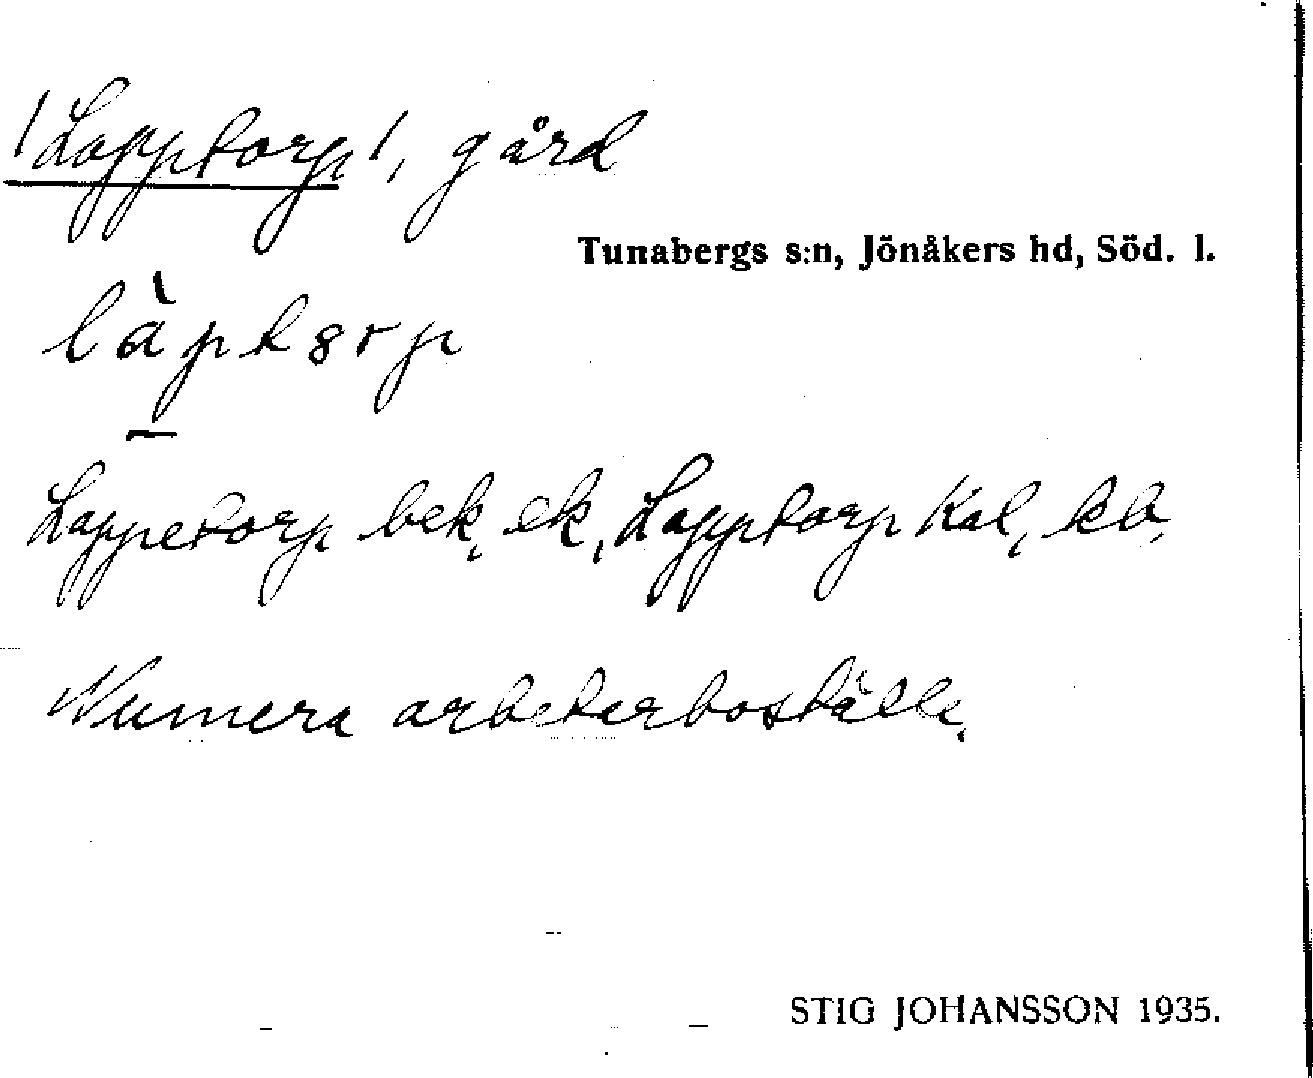 /Lapptorp/, gård
Tunabergs s:n, Jönåkers hd, Söd. l.
làptorp
Lappetorp bek, ek, Lapptorp Kal, kb,
Numera arbetarboställe,
STIG JOHANSSON 1935.